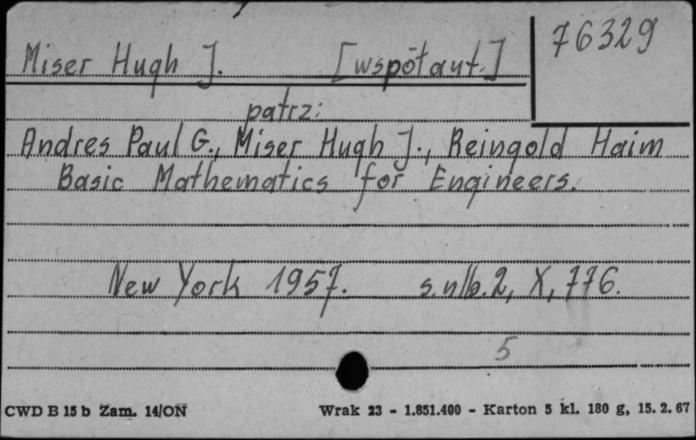 76329
Miser Hugh J. [współaut.]
patrz:
Andres Paul G., Miser Hugh J., Reingold Haim
Basic Mathematics for Engineers.
New York 1957. s.nlb.2, X, 776.
5
CWD B 15 b Zam. 14/ON Wrak 23 - 1.851.400 - Karton 5 kl. 180 g, 15. 2. 67